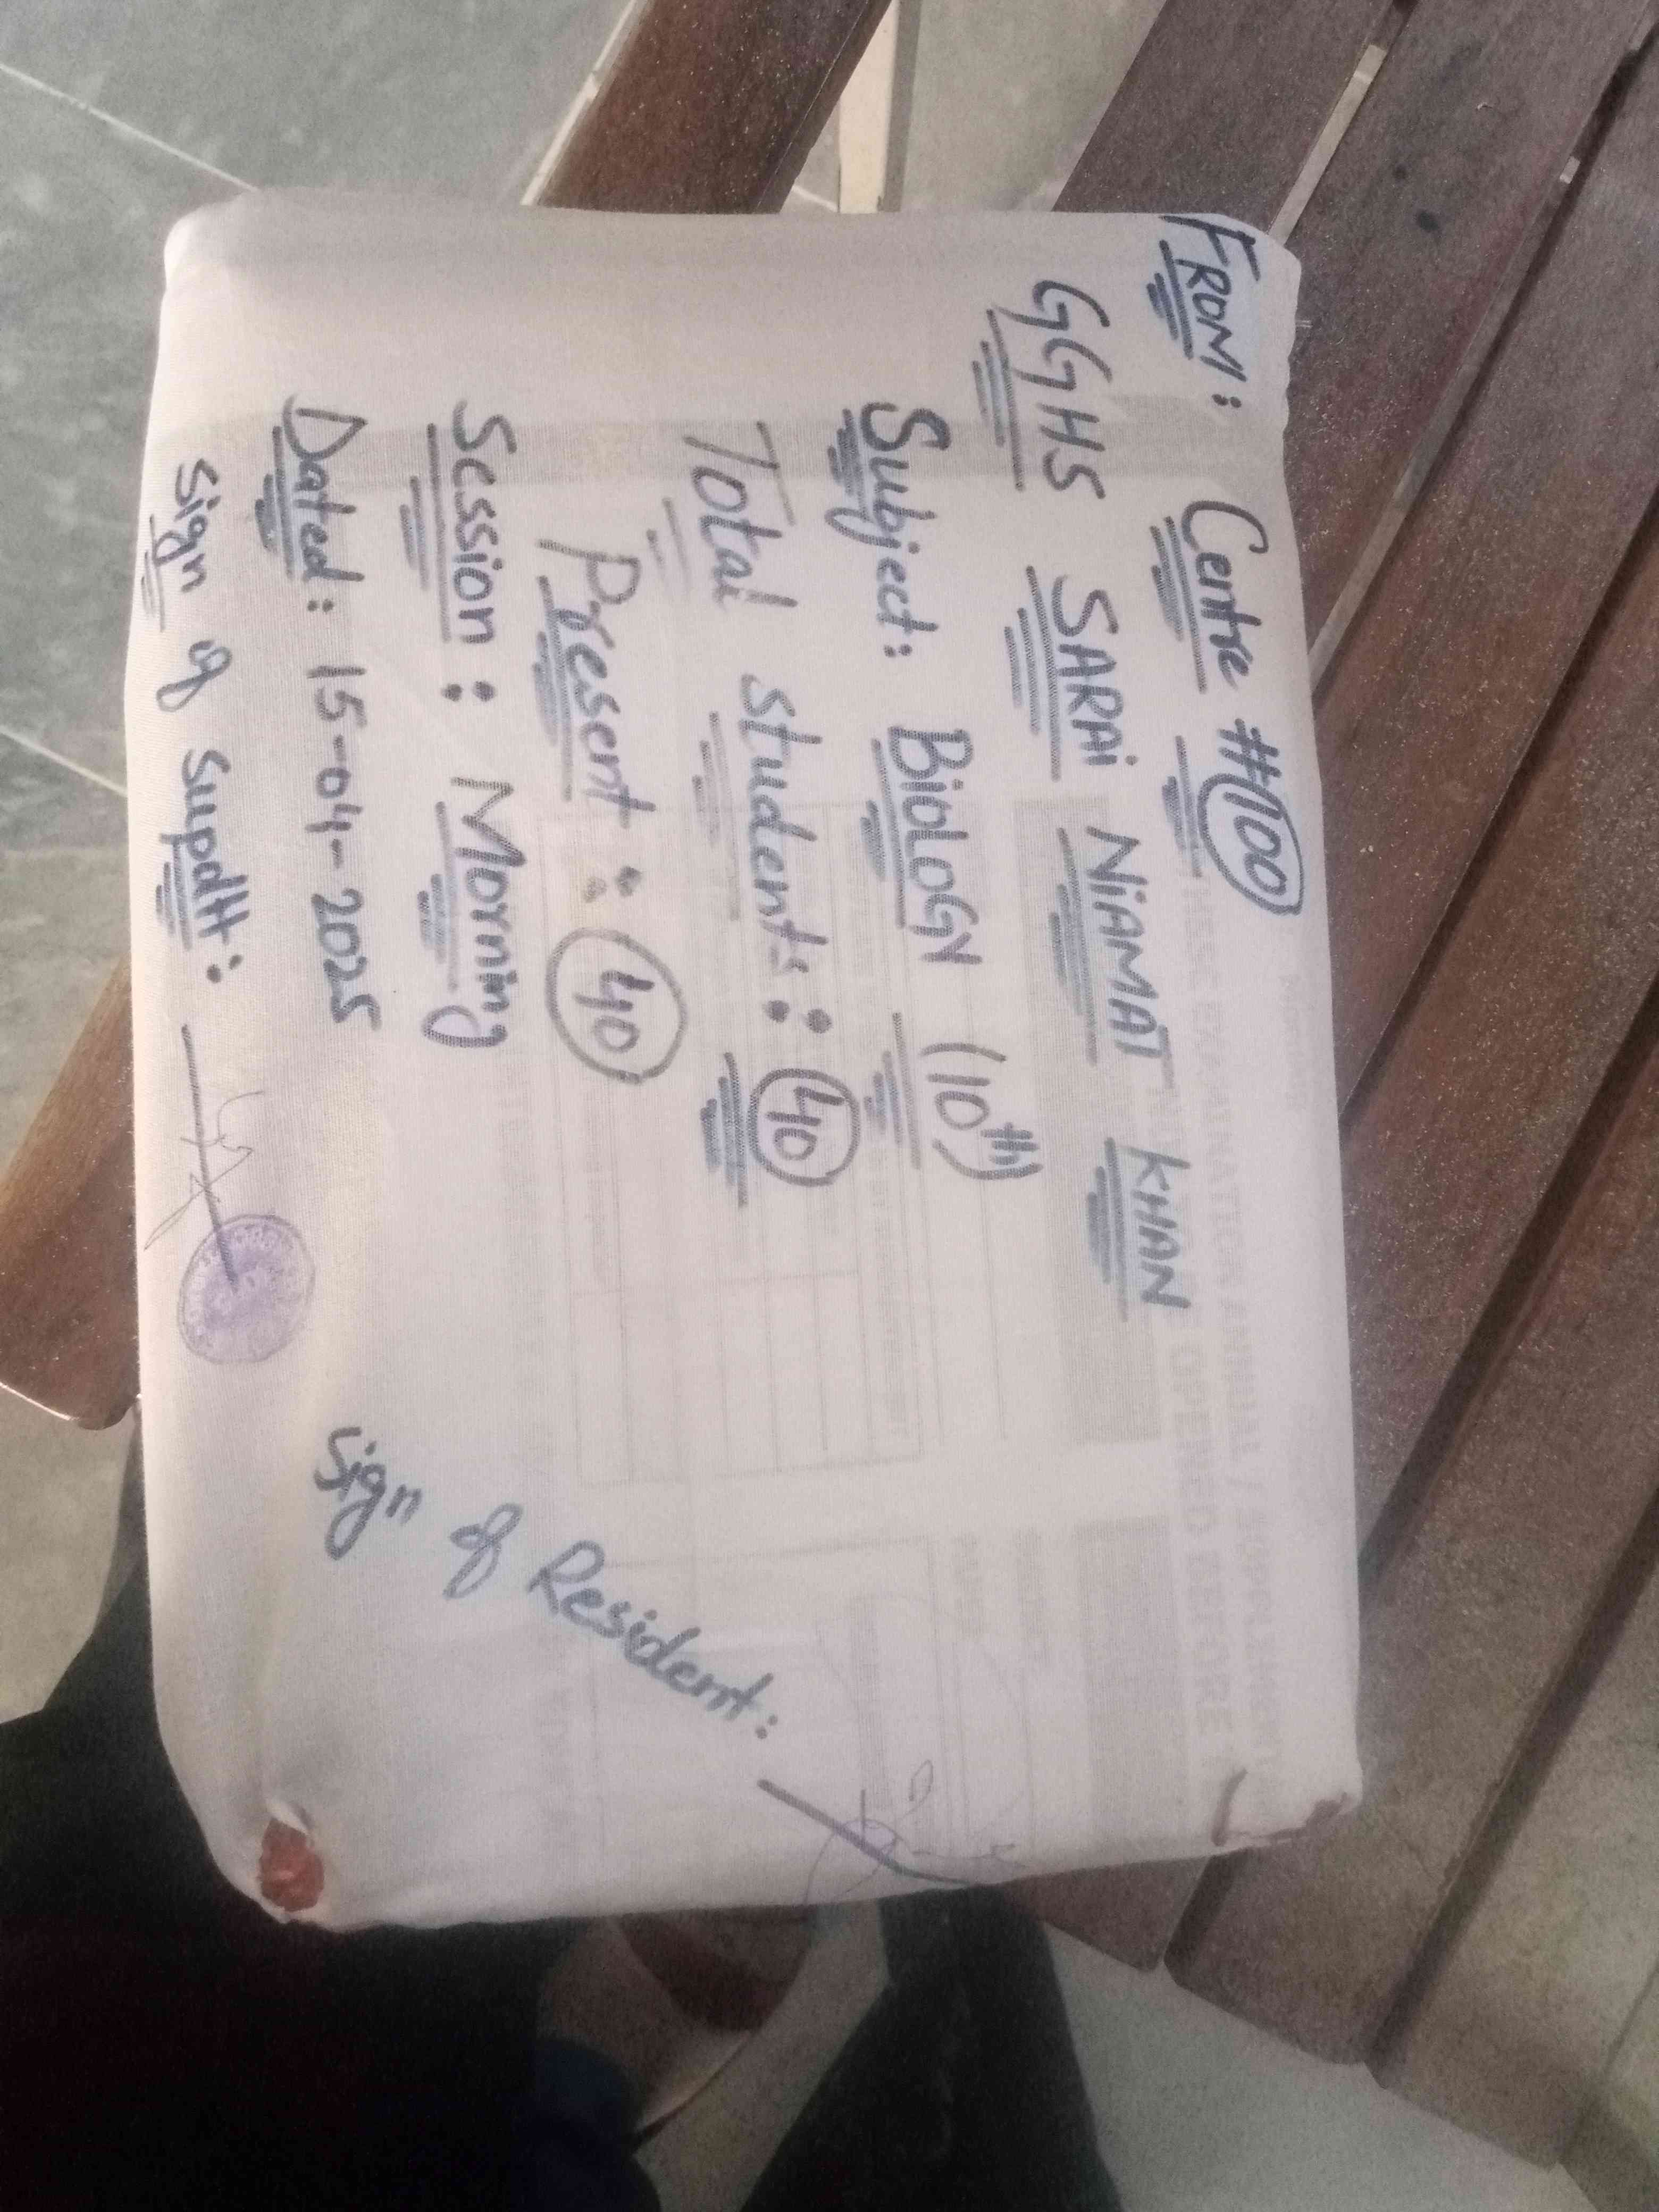 FROM: Centre #100
GGHS SARAi NiAMAT KHAN
Subject: BioLoGY (10th)
Total students: 40
Present: 40
Session: Morning
Dated: 15-04-2025
Sign of Supdtt:
Sign of Resident: